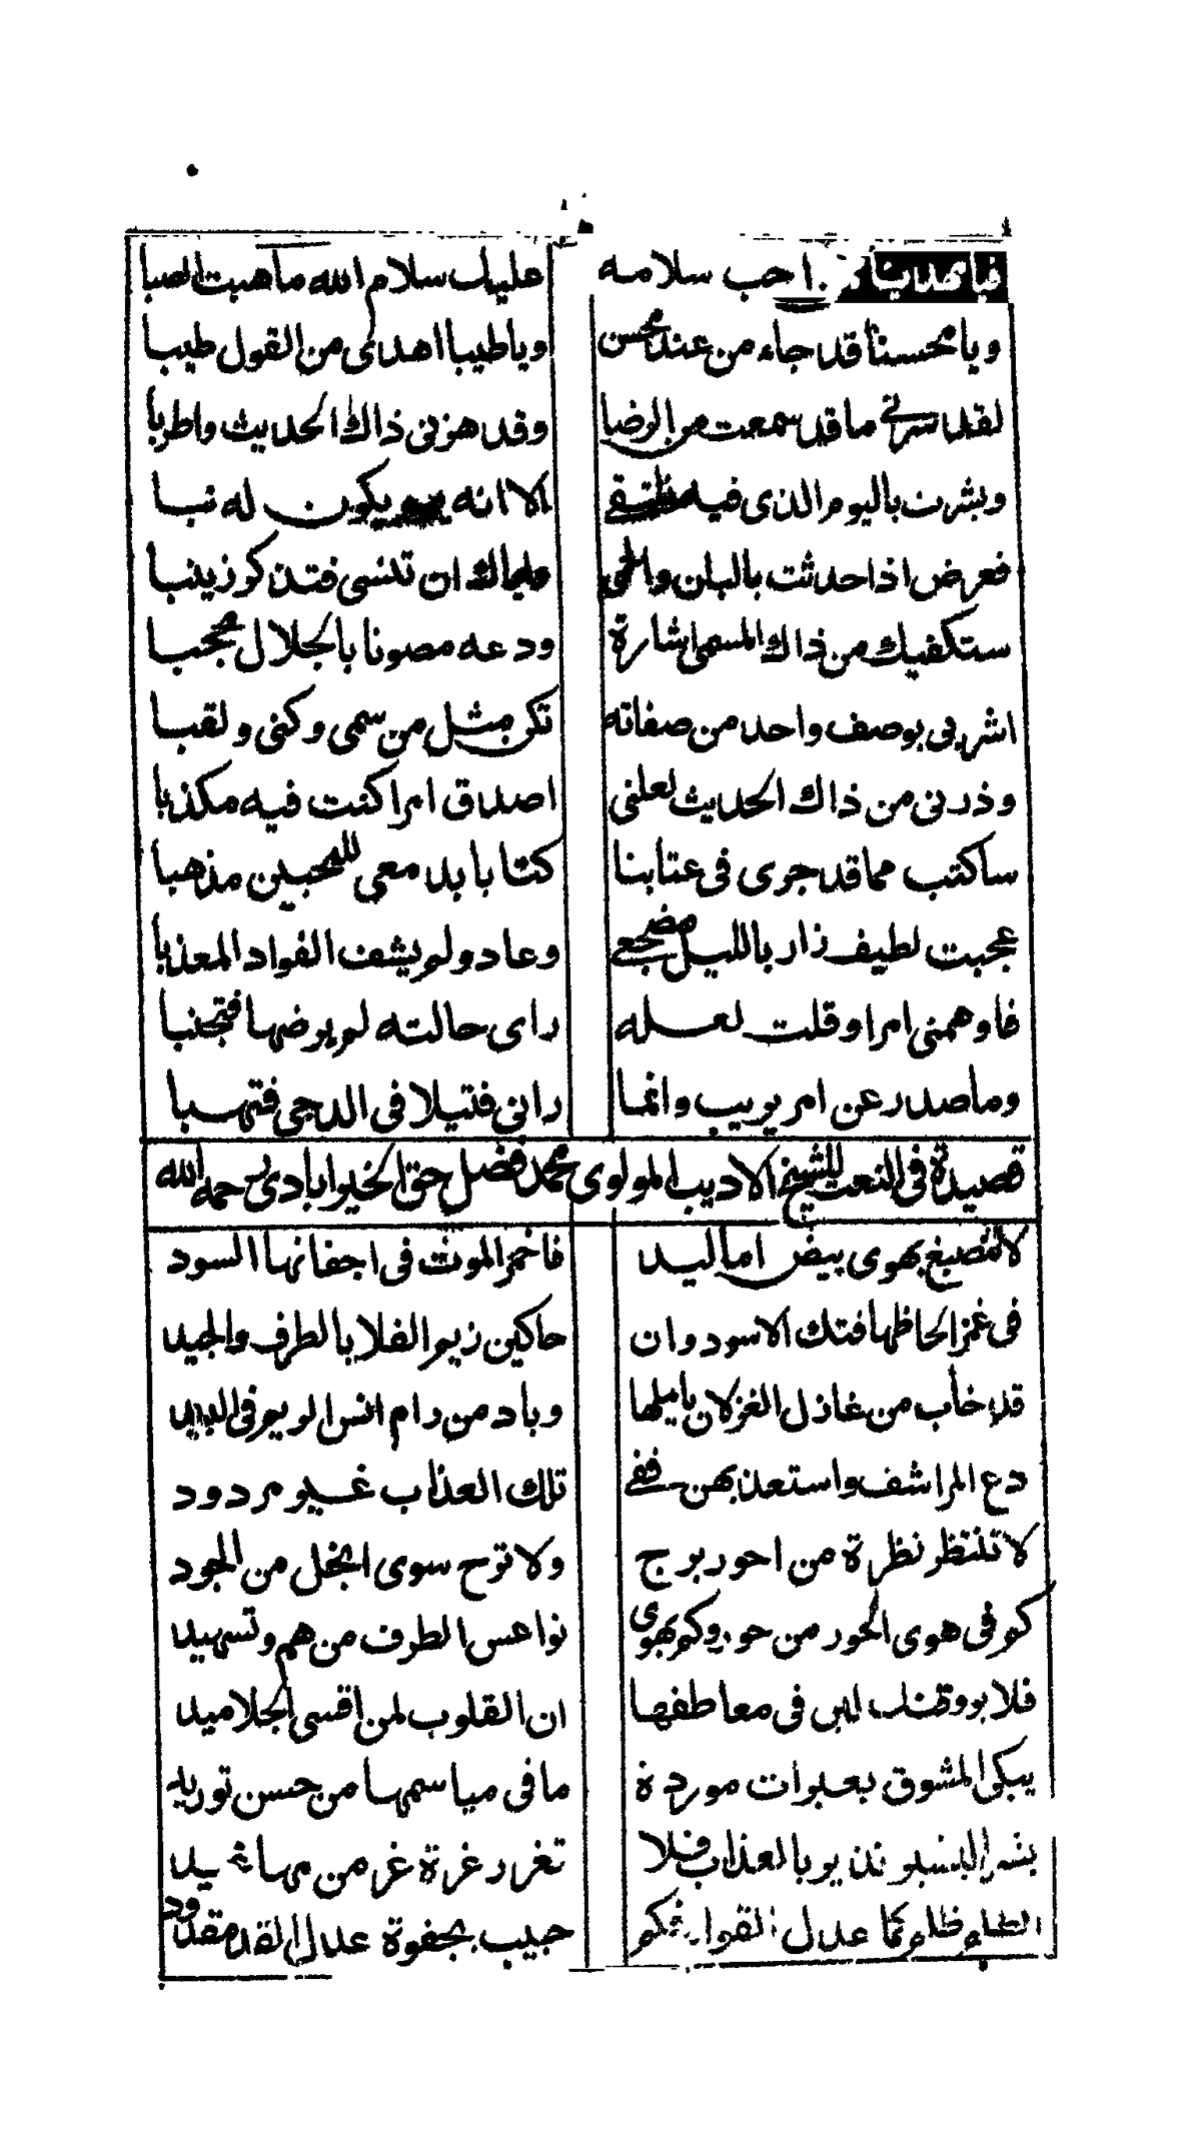 فيا مهديا احب سلامه عليك سلام الله ما هبت الصبا
ويا محسنا قد جاء من عند محسن ويا طيبا اهدى من القول طيبا
لقد سرني ما قد سمعت من الرضا وقد هزني ذاك الحديث واطربا
وبشرت باليوم الذى فيه نلتقي الا انه يوم يكون له نبا
فعرض اذا حدثت بالبان والحمى واياك ان تنسى فتذكر زينبا
ستكفيك من ذاك المسمى اشارة ودعه مصونا بالجلال محجبا
اشر لى بوصف واحد من صفاته تكن مثل من سمى وكنى ولقبا
وذرنى من ذاك الحديث لعلنى اصدق امرا كنت فيه مكذبا
ساكتب مما قد جرى فى عتابنا كتابا بدمعي للمحبين مذهبا
عجبت لطيف زار بالليل مضجعي وعاد ولم يشف الفواد المعذبا
فاوهمنى امرا وقلت لعله راى حالته لم يرضها فتجنبا
وما صدر عن امر يريب وانما رانى قتيلا فى الدجى فتهيبا
قصيدة فى النعت للشيخ الاديب المولوى محمد فضل حق الخيرابادى رحمه الله
لا تصبغ بهوى بيض اماليد فاخمر الموت فى اجفانها السود
فى غمز الحاظها فتك الاسود وان حاكين ريم الفلا بالطرف والجيد
قد خاب من غازل الغزلان ياملها وباد من رام انس الريم فى البيد
دع المراشف واستعذبهن ففي تلك العذاب غير مردود
لا تنتظر نظرة من احور برج ولا ترج سوى البخل من الجود
كم فى هوى الحور من حور وكم بهوى نواعس الطرف من هم وتسهيد
فلا يروقنك لين فى معاطفها ان القلوب لمن اقسى الجلاميد
يبكى المشوق بعبرات موردة ما فى مياسمها من حسن توريد
بشر نذير بالعذاب فلا تغرر غرة غر من مها غيد
ظلم كما عدل القوام حبيب بجفوة عدل القد مقدود